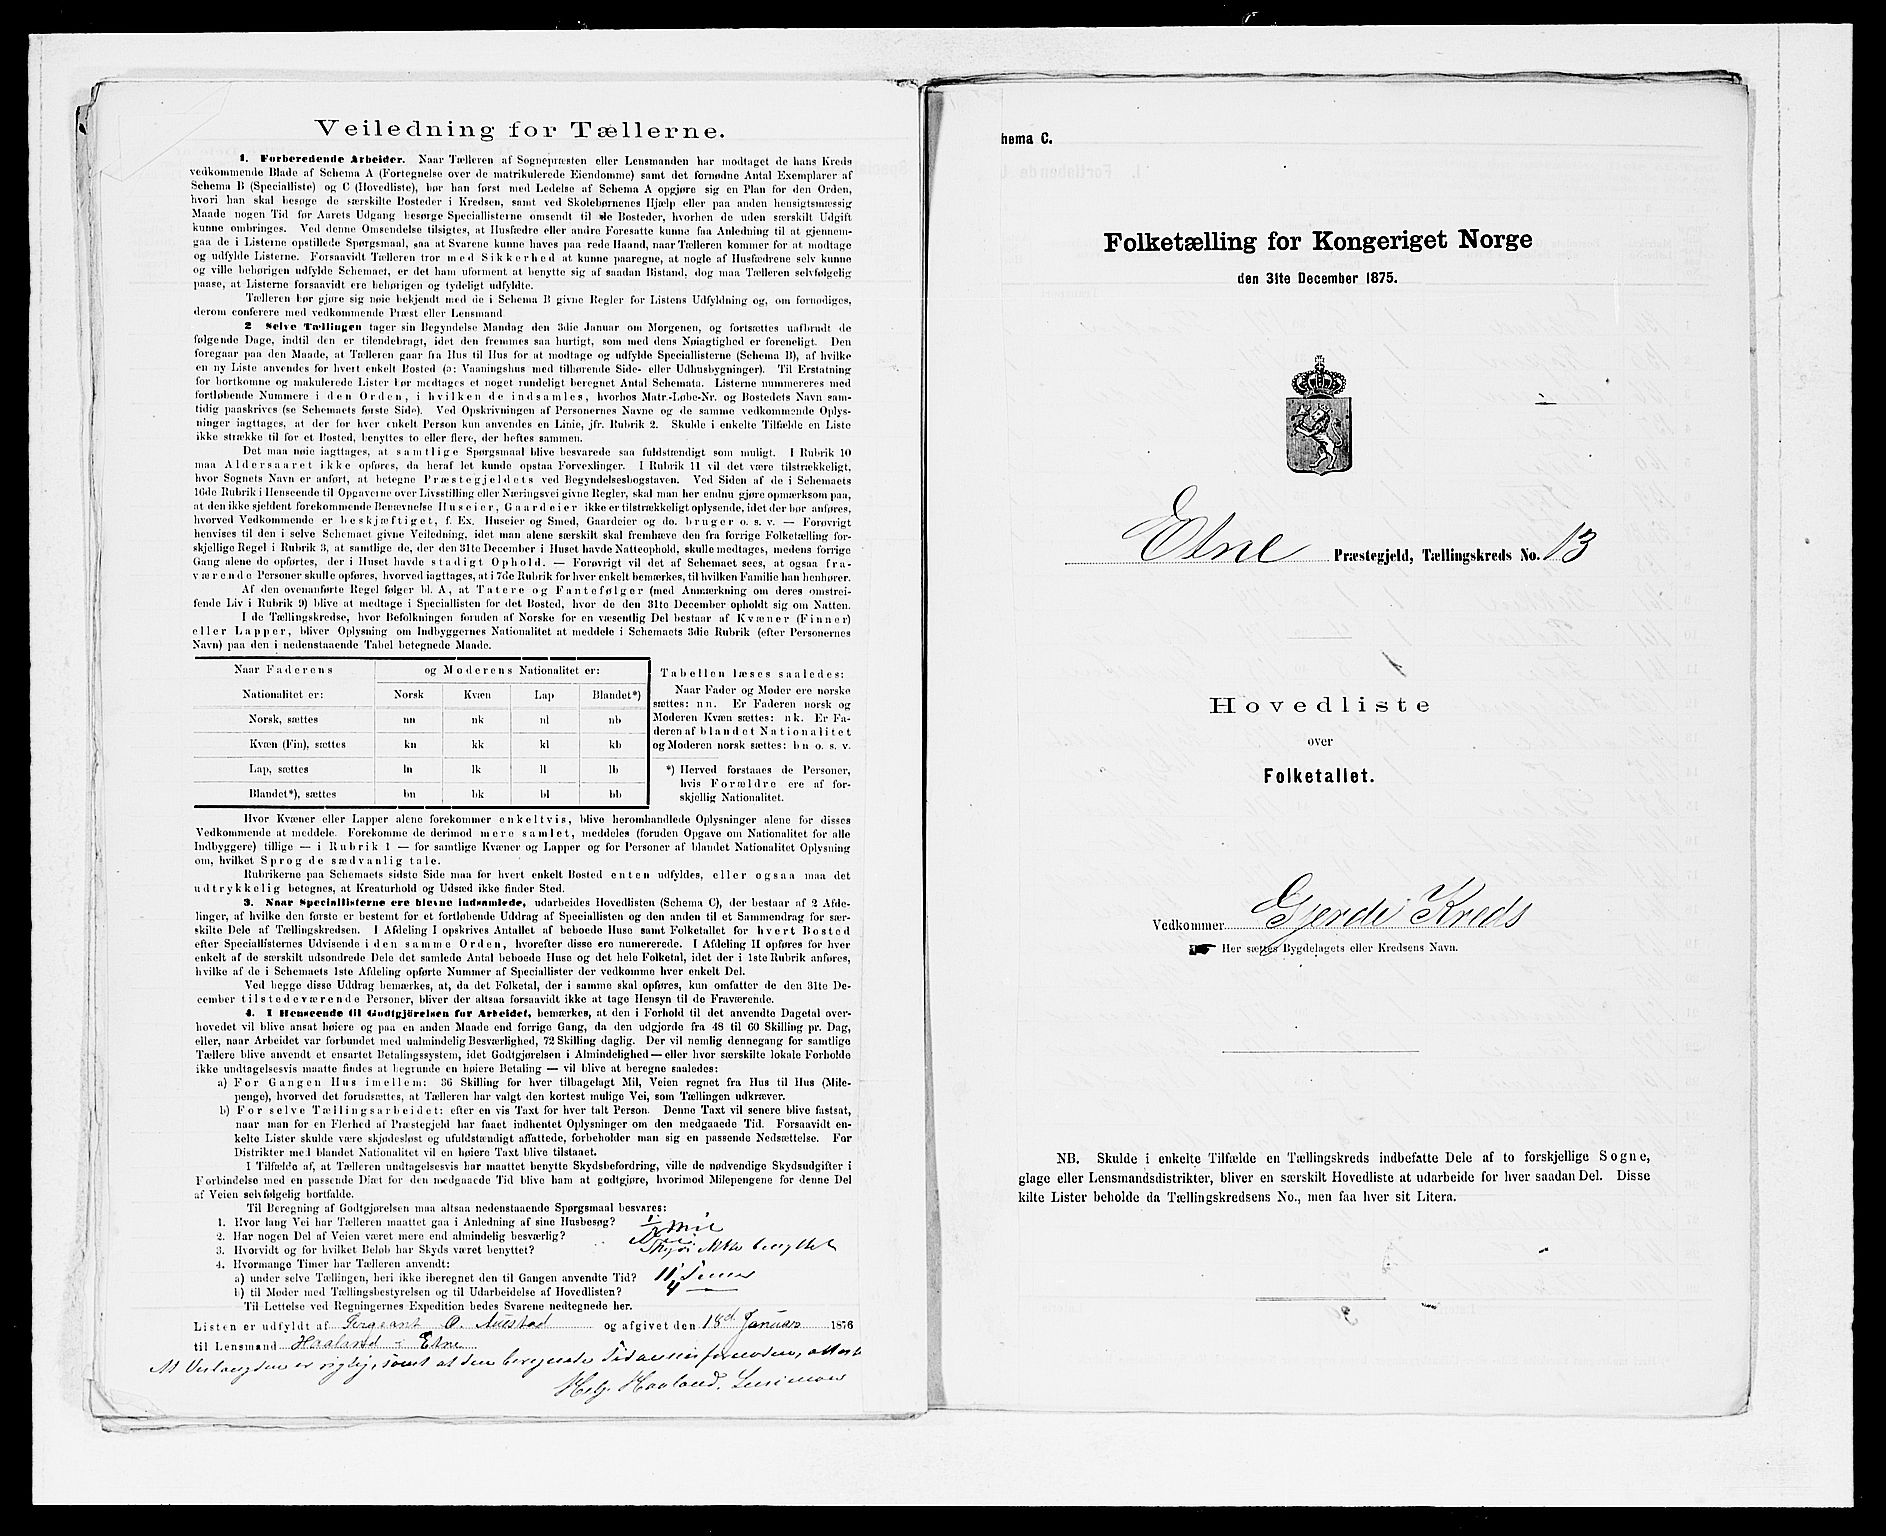 Veiledning for Tællerne.
1. Forberedende Arbeider. Naar Tælleren af Sognepræsten eller Lensmanden har modtaget de hans Kreds
vedkommende Blade af Schema A (Fortegnelse over de matrikulerede Eiendomme) samt det fornødne Antal Exemplarer af
Schema B (Specialliste) og C (Hovedliste), bør han først med Ledelse af Schema A opgjøre sig en Plan for den Orden,
hvori han skal besøge de særskilte Bosteder i Kredsen, samt ved Skolebørnenes Hjælp eller paa anden hensigtsmæssig
Maade nogen Tid før Aarets Udgang besørge Speciallisterne omsendt til de Bosteder, hvorhen de uden særskilt Udgift
kunne ombringes. Ved denne Omsendelse tilsigtes, at Husfædre eller andre Foresatte kunne faa Anledning til at gjennem-
gaa de i Listerne opstillede Spørgsmaal, saa at Svarene kunne haves paa rede Haand, naar Tælleren kommer for at modtage
og udfylde Listerne. Forsaavidt Tælleren tror med Sikkerhed at kunne paaregne, at nogle af Husfædrene selv kunne
og ville behørigen udfylde Schemaet, er det ham uforment at benytte sig af saadan Bistand, dog maa Tælleren selvfølgelig
paase, at Listerne forsaavidt ere behørigen og tydeligt udfyldte.
Tælleren bør gjøre sig nøie bekjendt med de i Schema B givne Regler for Listens Udfyldning og, om fornødiges,
derom conferere med vedkommende Præst eller Lensmand.
2 Selve Tællingen tager sin Begyndelse Mandag den 3die Januar om Morgenen, og fortsættes uafbrudt de
følgende Dage, indtil den er tilendebragt, idet den fremmes saa hurtigt, som med dens Nøiagtighed er foreneligt. Den
foregaar paa den Maade, at Tælleren gaar fra Hus til Hus for at modtage og udfylde Speciallisterne (Schema B), af hvilke
en ny Liste anvendes for hvert enkelt Bosted (ɔ: Vaaningshus med tilhørende Side- eller Udhusbygninger). Til Erstatning
for bortkomne og makulerede Lister bør medtages et noget rundeligt beregnet Antal Schemata. Listerne nummereres med
fortløbende Nummere i den Orden, i hvilken de indsamles, hvorhos Matr.-Løbe-Nr. og Bostedets Navn sam-
tidig paaskrives (se Schemaets første Side). Ved Opskrivningen af Personernes Navne og de samme vedkommende Oplys-
ninger iagttages, at der for hver enkelt Person kun anvendes en Linie, jfr. Rubrik 2. Skulde i enkelte Tilfælde en Liste
ikke strække til for et Bosted, benyttes to eller flere, der heftes sammen.
Det maa nøie iagttages, at samtlige Spørgsmaal blive besvarede saa fuldstændigt som muligt. I Rubrik 10
maa Aldersaaret ikke opføres, da heraf let kunde opstaa Forvexlinger. I Rubrik 11 vil det være tilstrækkeligt,
hvor Sognets Navn er anført, at betegne Præstegjeldets ved Begyndelsesbogstaven. Ved Siden af de i Schemaets
10de Rubrik i Henseende til Opgaverne over Livsstilling eller Næringsvei givne Regler, skal man her endnu gjøre opmærksom paa,
at den ikke sjeldent forekommende Benævnelse Huseier, Gaardeier ikke er tilstrækkeligt oplysende, idet der bør anføres,
hvorved Vedkommende er beskjæftiget, f. Ex. Huseier og Smed, Gaardeier og do. bruger o. s. v. — Forøvrigt
henvises til den i selve Schemaet givne Veiledning, idet man alene særskilt skal fremhæve den fra forrige Folketælling for-
skjellige Regel i Rubrik 3, at samtlige de, der den 31te December i Huset havde Natteophold, skulle medtages, medens forrige
Gang alene de opførtes, der i Huset havde stadigt Ophold. — Forøvrigt vil det af Schemaet sees, at ogsaa fra-
værende Personer skulle opføres, hvorved iagttages, at i 7de Rubrik for hver enkelt bemærkes, til hvilken Familie han henhører.
Af den ovenanførte Regel følger bl. A., at Tatere og Fantefølger (med Anmærkning om deres omstrei-
fende Liv i Rubrik 9) blive at medtage i Speciallisten for det Bosted, hvor de den 31te December opholdt sig om Natten.
I de Tællingskredse, hvor Befolkningen foruden af Norske for en væsentlig Del bestaar af Kvæner (Finner)
eller Lapper, bliver Oplysning om Indbyggernes Nationalitet at meddele i Schemaets 3die Rubrik (efter Personernes
Navn) paa den i nedenstaaende Tabel betegnede Maade.
Naar Faderens og Moderens Nationalitet er:
Nationalitet er: Norsk Kvæn Lap Blandet*)
Norsk, sættes nn nk nl nb
Kvæn (Fin), sættes kn kk kl kb
Lap, sættes ln lk ll lb
Blandet*), sættes bn bk bl bb
Tabellen læses saaledes:
Naar Fader og Moder ere norske
sættes: nn. Er Faderen norsk og
Moderen Kvæn sættes: nk. Er Fa-
deren af blandet Nationalitet
og Moderen norsk sættes: bn o. s. v.
*) Herved forstaaes de Personer,
hvis Forældre ere af for-
skjellig Nationalitet.
Hvor Kvæner eller Lapper alene forekommer enkeltvis, blive heromhandlede Oplysninger alene for disses
Vedkommende at meddele. Forekomme de derimod mere samlet, meddeles (foruden Opgave om Nationalitet for alle
Indbyggere) tillige — i Rubrik 1 — for samtlige Kvæner og Lapper og for Personer af blandet Nationalitet Oplysning
om, hvilket Sprog de sædvanlig tale.
Rubrikerne paa Schemaets sidste Side maa for hvert enkelt Bosted enten udfyldes, eller ogsaa maa det
udtrykkelig betegnes, at Kreaturhold og Udsæd ikke finder Sted.
3. Naar Speciallisterne ere blevne indsamlede, udarbeides Hovedlisten (Schema C), der bestaar af 2 Afde-
linger, af hvilke den første er bestemt for et fortløbende Uddrag af Speciallisten og den anden til et Sammendrag for sær-
skilte Dele af Tællingskredsen. I Afdeling I opskrives Antallet af beboede Huse samt Folketallet for hvert Bosted
efter Speciallisternes Udvisende i den samme Orden, hvorefter disse ere numererede. I Afdeling II opføres for hver
enkelt af de særskilt udsondrede Dele det samlede Antal beboede Huse og det hele Folketal, idet der i 1ste Rubrik anføres,
hvilke af de i Schemaets 1ste Afdeling opførte Nummer af Speciallister der vedkomme hver enkelt Del.
Ved begge disse Uddrag bemærkes, at, da det Folketal, der i samme skal opføres, kun omfatter de den 31te De-
cember tilstedeværende Personer, bliver der altsaa forsaavidt ikke at tage Hensyn til de Fraværende.
4. I Henseende til Godtgjörelsen for Arbeidet, bemærkes, at den i Forhold til det anvendte Dagetal over-
hovedet vil blive ansat høiere og paa en anden Maade end forrige Gang, da den udgjorde fra 48 til 60 Skilling pr. Dag,
eller, naar Arbeidet var forbundet med ualmindelig Besværlighed, 72 Skilling daglig. Der vil nemlig dennegang for samtlige
Tællere blive anvendt et ensartet Betalingssystem, idet Godtgjørelsen i Almindelighed — eller hvor særskilte lokale Forholde
ikke undtagelsesvis maatte findes at begrunde en høiere Betaling — vil blive at beregne saaledes:
a) For Gangen Hus imellem: 36 Skilling for hver tilbagelagt Mil, Veien regnet fra Hus til Hus (Mile-
penge), hvorved det forudsættes, at Tælleren har valgt den kortest mulige Vei, som Tællingen udkræver.
b) For selve Tællingsarbeidet: efter en vis Taxt for hver talt Person. Denne Taxt vil senere blive fastsat,
naar man for en Flerhed af Præstegjeld har faaet indhentet Oplysninger om den medgaaede Tid. Forsaavidt en-
kelte Lister skulde være skjødesløst og ufuldstændigt affattede, forbeholder man sig en passende Nedsættelse. For
Distrikter med blandet Nationalitet vil en høiere Taxt blive tilstaaet.
I Tilfælde af, at Tælleren undtagelsesvis har maattet benytte Skydsbefordring, ville de nødvendige Skydsudgifter i
Forbindelse med en passende Diæt for den medgaaede Tid blive ham at godtgjøre, hvorimod Milepengene for denne Del
af Veien selvfølgelig bortfalde.
Til Beregning af Godtgjørelsen maa altsaa nedenstaaende Spørgsmaal besvares:
1. Hvor lang Vei har Tælleren maattet gaa i Anledning af sine Husbesøg? 1/2 Mil
2. Har nogen Del af Veien været mere end almindelig besværlig?
3. Hvorvidt og for hvilket Beløb har Skyds været benyttet? Skyds ikke benyttet
4. Hvormange Timer har Tælleren anvendt:
a) under selve Tællingen, heri ikke iberegnet den til Gangen anvendte Tid? 11 Timer
b) til Møder med Tællingsbestyrelsen og til Udarbeidelse af Hovedlisten? 4 —
Til Lettelse ved Regningernes Expedition bedes Svarene nedtegnede her.
Listen er udfyldt af Sergeant O. Austad og afgivet den 18d Januar 1876
til Lensmand Haaland i Etne
At Veilængden er rigtig, samt at den beregnede Tid ansees fornøden,
Helg. Haaland, Lensmand
hema C.
Folketælling for Kongeriget Norge
den 31te December 1875.
Etne Præstegjeld, Tællingskreds No. 13
Hovedliste
over
Folketallet.
Vedkommer Gjerde Kreds
Her sættes Bygdelagets eller Kredsens Navn.
NB. Skulde i enkelte Tilfælde en Tællingskreds indbefatte Dele af to forskjellige Sogne,
glage eller Lensmandsdistrikter, bliver en særskilt Hovedliste at udarbeide for hver saadan Del. Disse
kilte Lister beholde da Tællingskredsens No., men faa hver sit Litera.